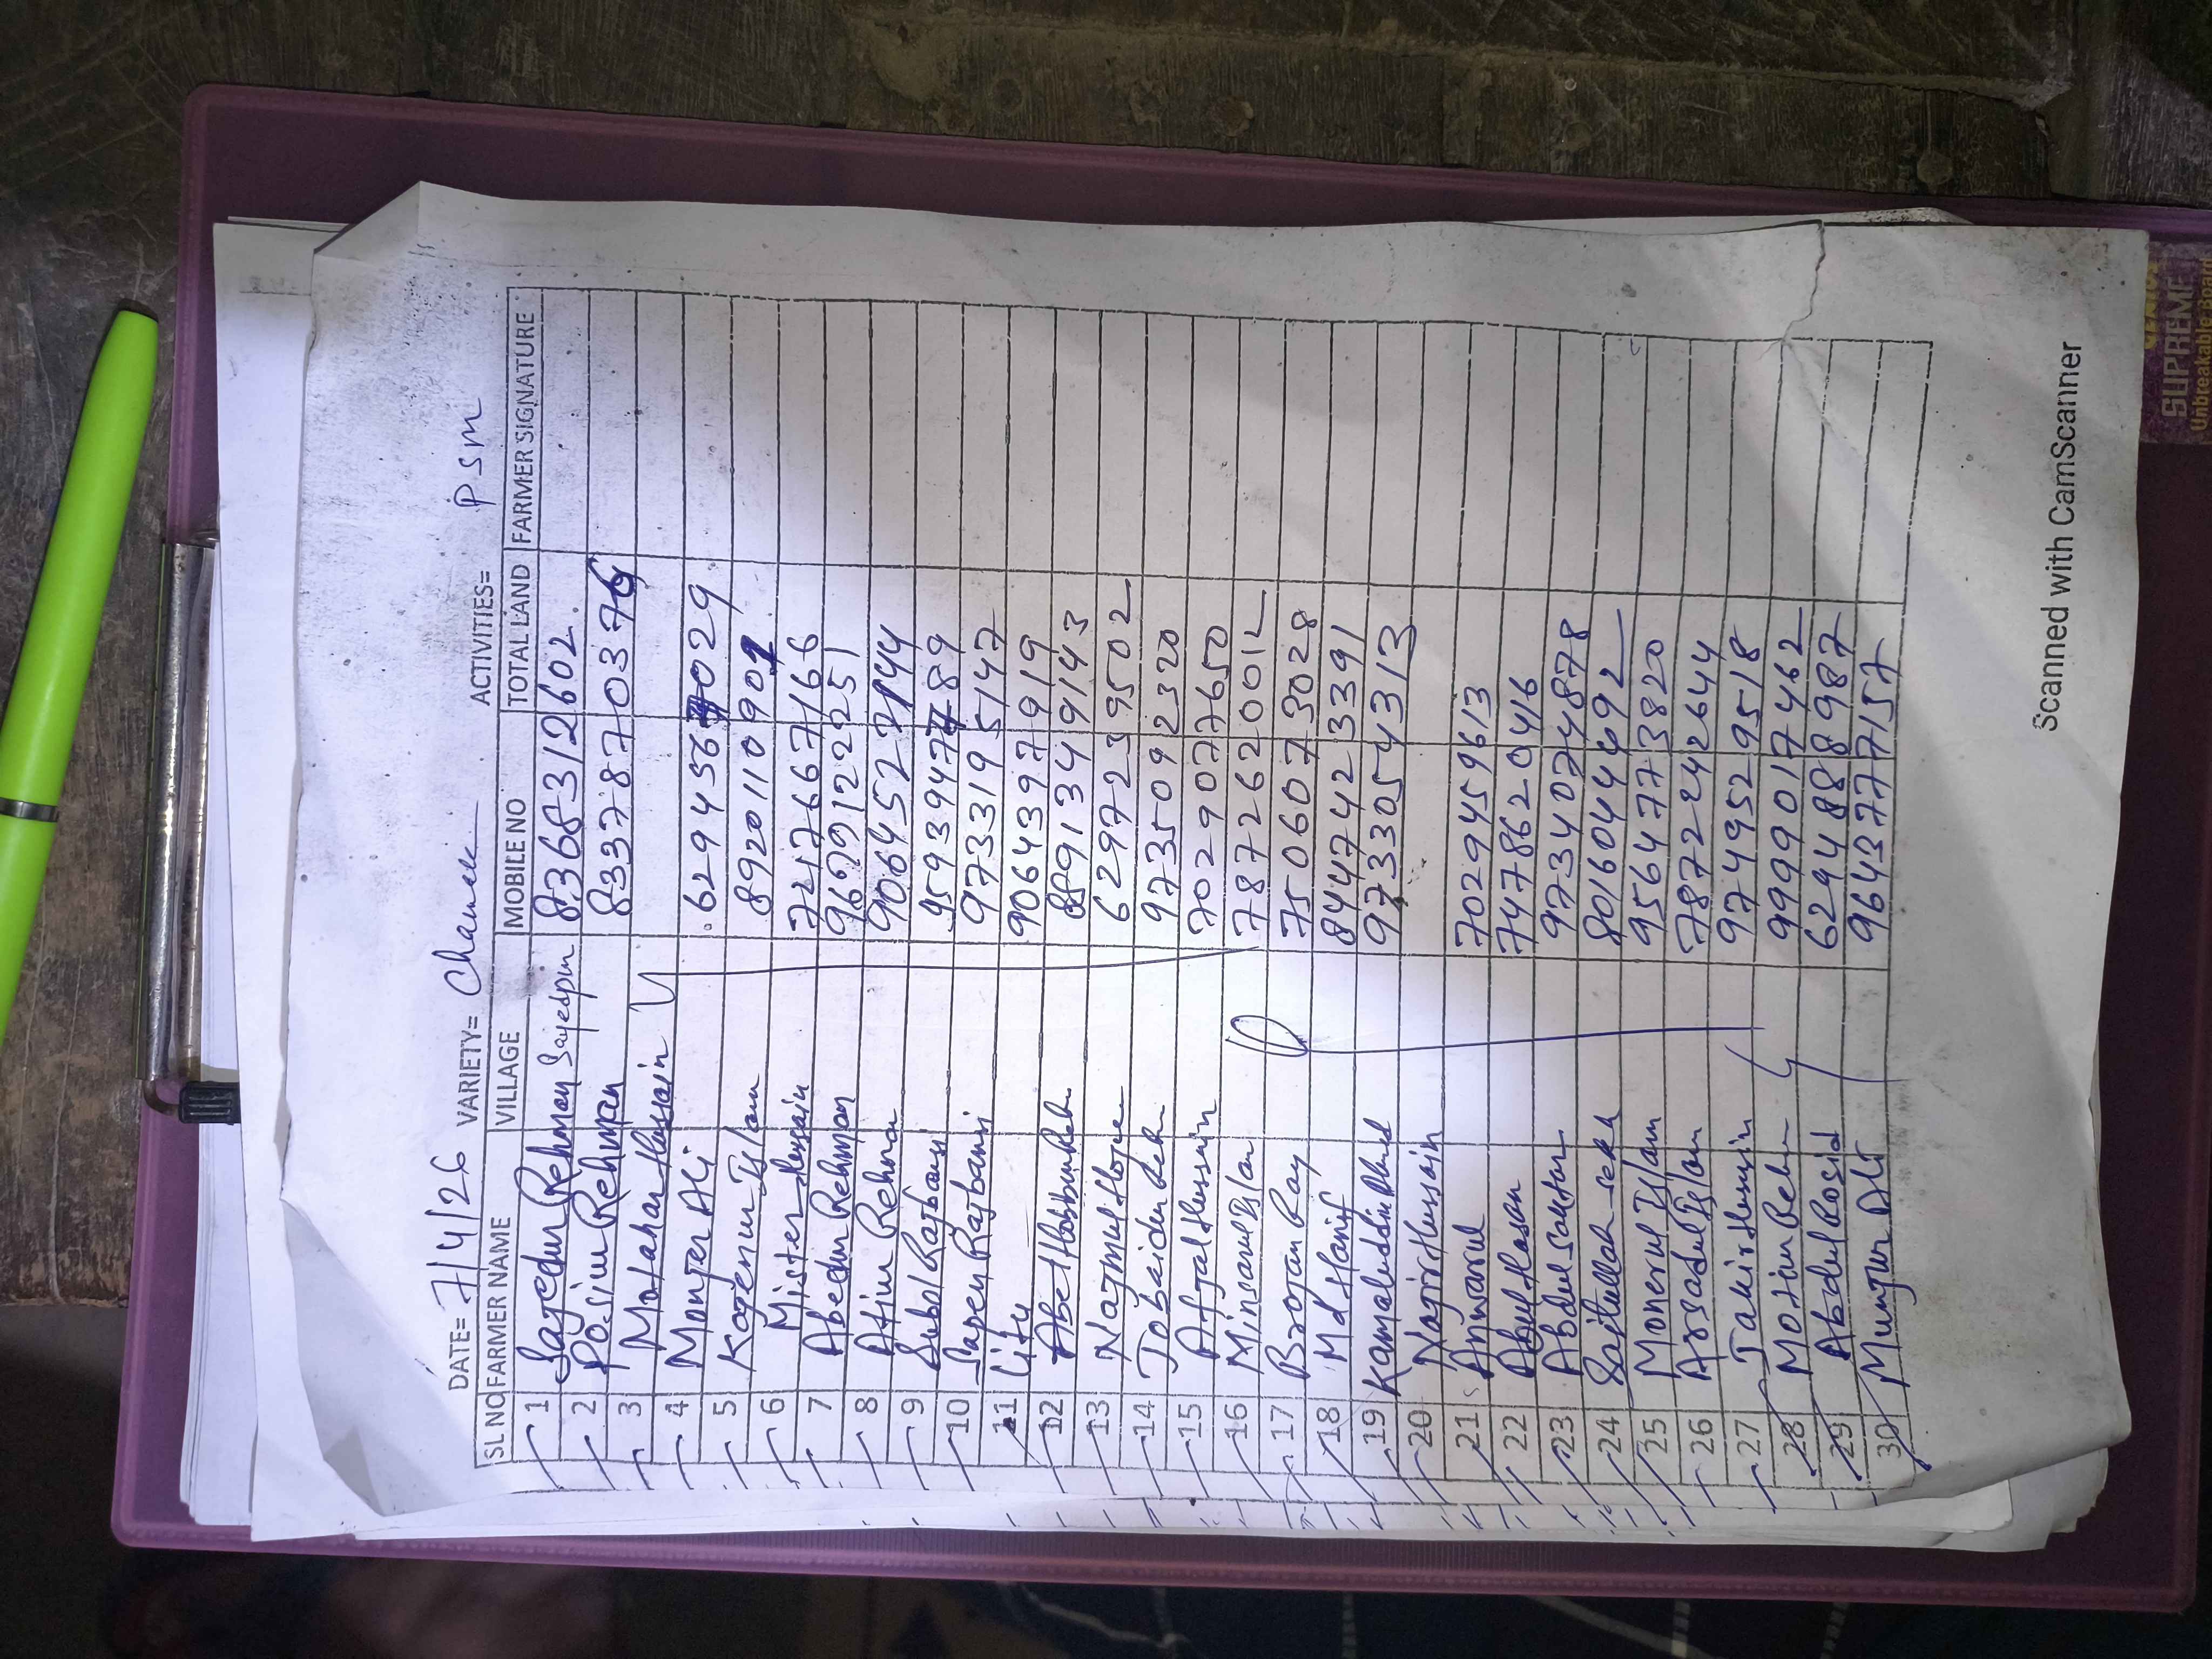 DATE= 7/4/26 VARIETY= Chamak ACTIVITIES= PSM
SL NO FARMER NAME VILLAGE MOBILE NO TOTAL LAND FARMER SIGNATURE
1 Sayedur Rehman Sayedpur 8368312602
2 Posiur Rehman 8337870376
3 Motahar Hussain
4 Monjer Ali 6294568029
5 Kogenur Islam 8920110901
6 Mister Hussain 7247667166
7 Abedur Rehman 9679122251
8 Atiur Rehman 9064522144
9 Subol Rajbansi 9593947789
10 Sapen Rajbansi 9733195147
11 Litu 9064397919
12 Abet Habibur Reh 8891349143
13 Najmul Hoque 6297239502
14 Tobaidur Reh 9735092320
15 Aftal Hussain 7029077650
16 Minsarul Islam 7872620012
17 Brojan Roy 7506073028
18 Md Hanif 8447423391
19 Kamaluddin Ahmed 9733054313
20 Najir Hussain
21 Anwarul 7029459613
22 Abul Hasan 7478620416
23 Abdul Sattar 9734074878
24 Saifullah Sekh 8016044692
25 Monerul Islam 9564773820
26 Arsadul Islam 7872242644
27 Jakir Hussain 9749529518
28 Motiur Reh 9999017462
29 Abdul Rosid 6294888987
30 Munjur Ali 9643777157
Scanned with CamScanner
SUPREME
Unbreakable pad